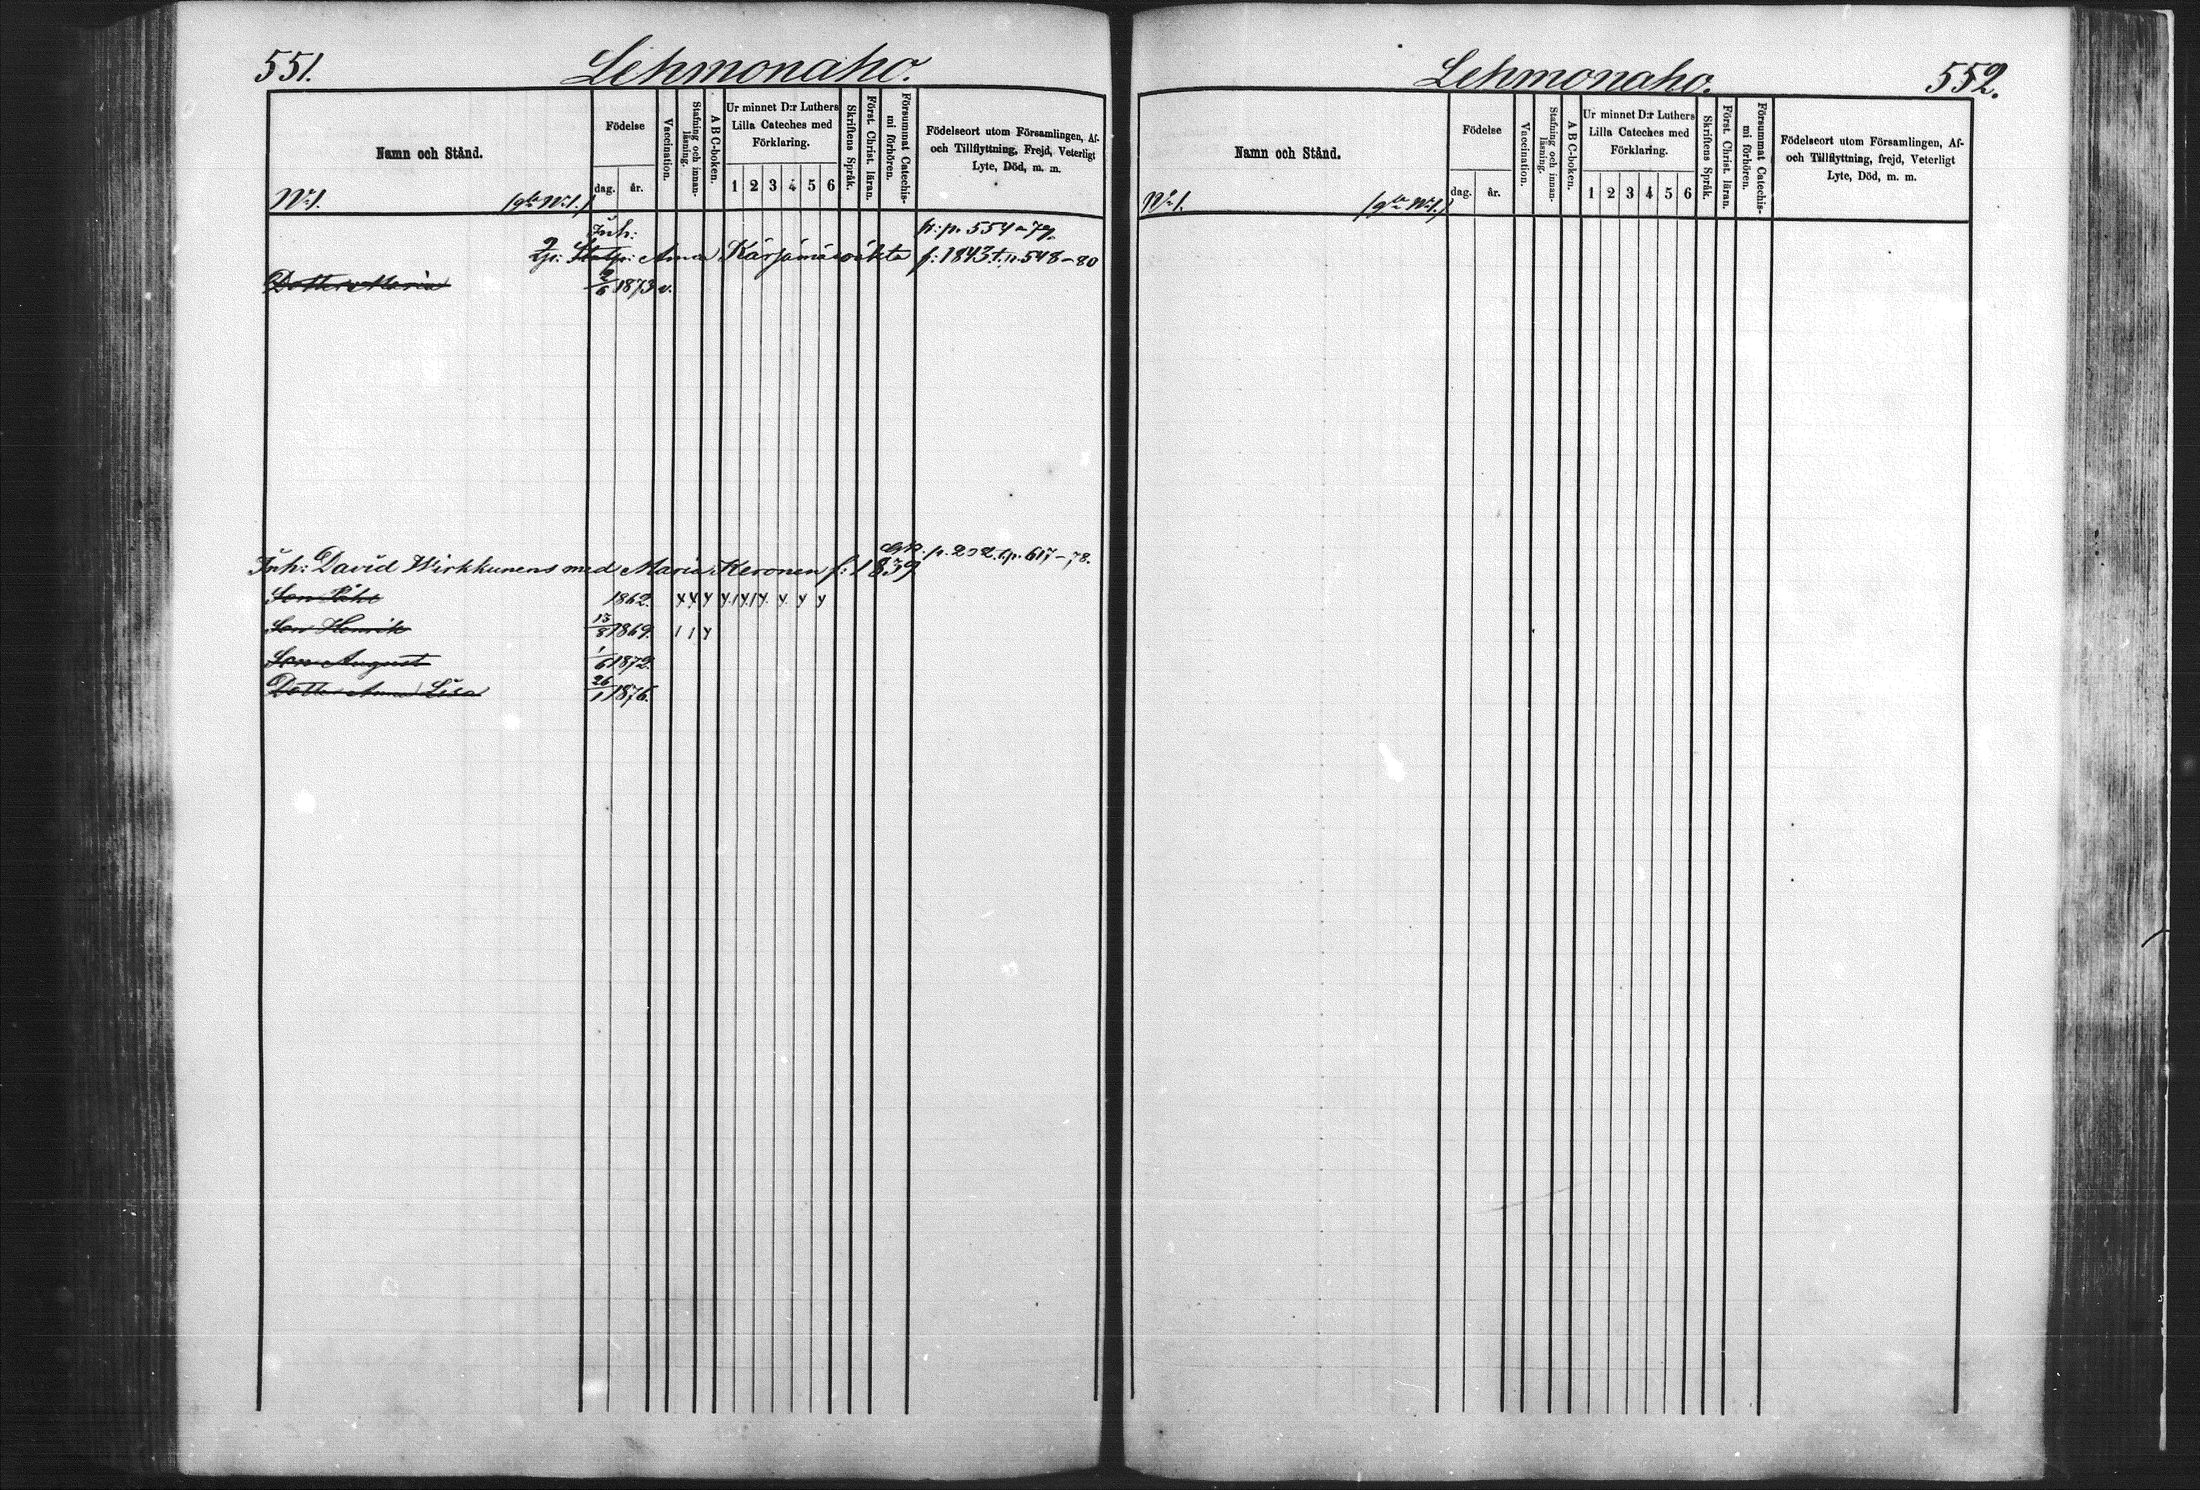 551. Lehmonaho.
Namn och Stånd.
Födelse
dag. år.
Vaccination.
Stafning och innanläsning.
ABC-boken.
Ur minnet D:r Luthers
Lilla Cateches med
Förklaring.
1 2 3 4 5 6
Skriftens Språk.
Först. Christ. läran.
Försummat Catechismi förhören.
Födelseort utom Församlingen, Af-
och Tillflyttning, Frejd, Veterligt
Lyte, Död, m. m.
N:1.
Inh: p. 554-79.
Anna f: 1843 p. 548-80
Dotter Maria 2/6 1873 v.
p. 617-78.
Inh: David Wirkkunens med Maria Keronen f: 1839
Son 1862.
Son Henrik 1869.
Son August 1/6 1872.
Dotter Anna Lisa 26/1 1876.
Lehmonaho. 552.
Namn och Stånd.
Födelse
dag. år.
Vaccination.
Stafning och innanläsning.
ABC-boken.
Ur minnet D:r Luthers
Lilla Cateches med
Förklaring.
1 2 3 4 5 6
Skriftens Språk.
Först. Christ. läran.
Försummat Catechismi förhören.
Födelseort utom Församlingen, Af-
och Tillflyttning, frejd, Veterligt
Lyte, Död, m. m.
N:1.